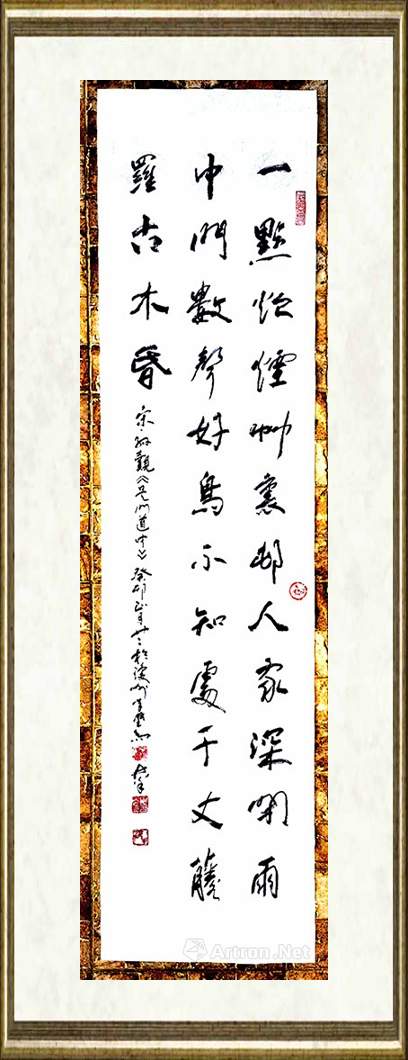 一點炊煙竹裏邨人家深閉雨
中門數聲好鳥不知處千丈藤
羅古木昏
宋·孫覿《吳門道中》癸卯
Artron.Net